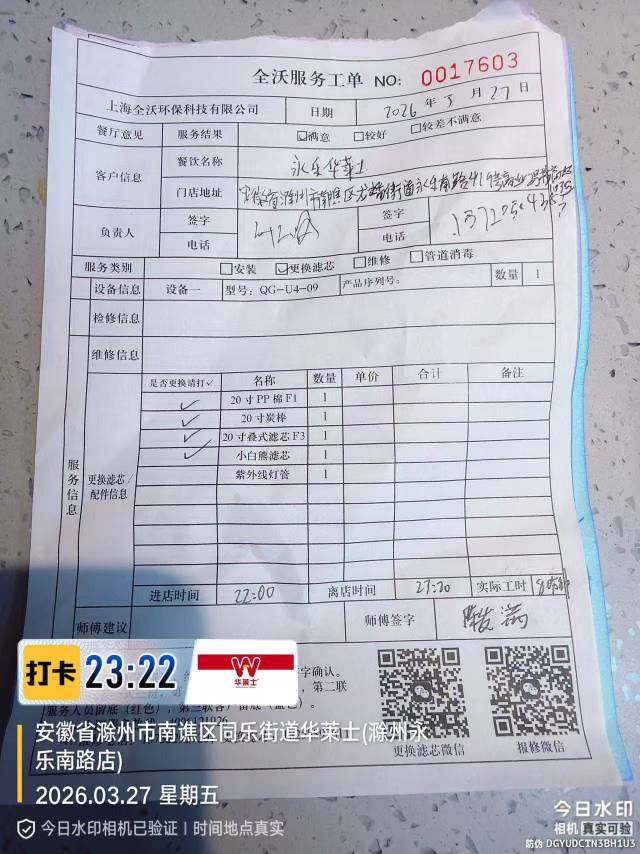 全沃服务工单 NO: 0017603
上海全沃环保科技有限公司 日期 2026 年 3 月 27 日
餐厅意见 服务结果 ☑满意 □较好 □较差不满意
客户信息 餐饮名称 永乐华莱士
门店地址 安徽省滁州市南谯区
负责人 签字 签字
电话 电话
服务类别 □安装 ☑更换滤芯 □维修 □管道消毒
设备信息 设备一 型号: QG-U4-09 产品序列号: 数量 1
检修信息
维修信息
服务信息
更换滤芯/配件信息
是否更换请打✓ 名称 数量 单价 合计 备注
✓ 20寸PP棉F1 1
✓ 20寸炭棒 1
✓ 20寸叠式滤芯F3 1
✓ 小白熊滤芯 1
紫外线灯管 1
进店时间 22:00 离店时间 实际工时
师傅建议 师傅签字
字确认。
第二联
服务人员留底(红色)
更换滤芯微信 报修微信
打卡 23:22
华莱士
安徽省滁州市南谯区同乐街道华莱士(滁州永
乐南路店)
2026.03.27 星期五
今日水印相机已验证 | 时间地点真实
今日水印
相机 真实可验
防伪 DGYUDCTN3BH1U3